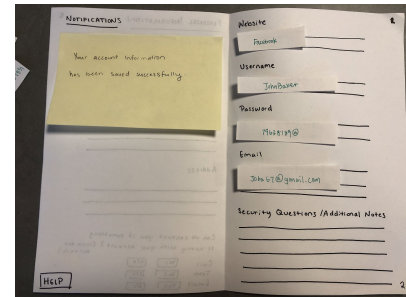 NOTIFICATIONS
Your account information
has been saved successfully.
HELP
Website
Facebook
Username
JohnBaker
Password
Email
John67@gmail.com
Security Questions /Additional Notes
2